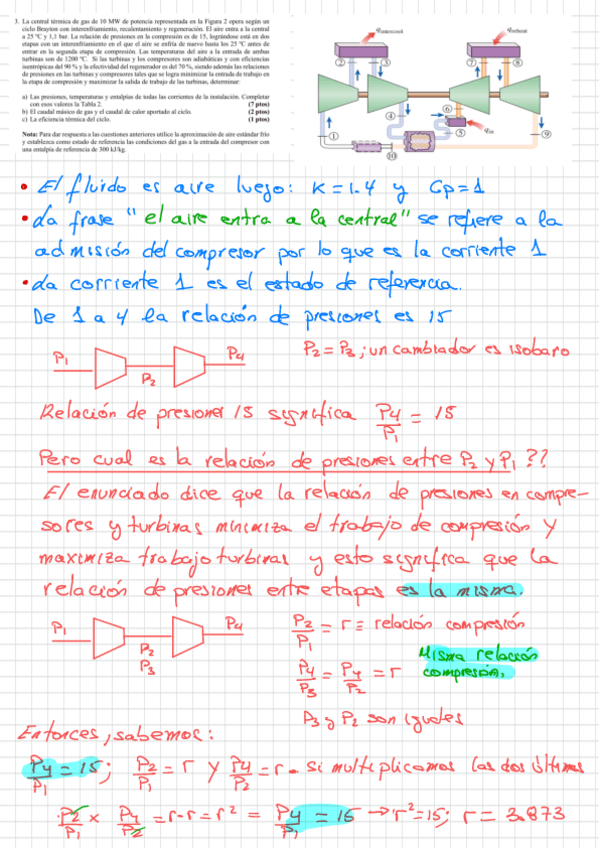 3. La central térmica de gas de 10 MW de potencia representada en la Figura 2 opera según un
ciclo Brayton con interenfriamiento, recalentamiento y regeneración. El aire entra a la central
a 25 ºC y 1,1 bar. La relación de presiones en la compresión es de 15, lográndose está en dos
etapas con un interenfriamiento en el que el aire se enfría de nuevo hasta los 25 ºC antes de
entrar en la segunda etapa de compresión. Las temperaturas del aire a la entrada de ambas
turbinas son de 1200 ºC. Si las turbinas y los compresores son adiabáticas y con eficiencias
isentrópicas del 90 % y la efectividad del regenerador es del 70 %, siendo además las relaciones
de presiones en las turbinas y compresores tales que se logra minimizar la entrada de trabajo en
la etapa de compresión y maximizar la salida de trabajo de las turbinas, determinar:
a) Las presiones, temperaturas y entalpías de todas las corrientes de la instalación. Completar
con esos valores la Tabla 2. (7 ptos)
b) El caudal másico de gas y el caudal de calor aportado al ciclo. (2 ptos)
c) La eficiencia térmica del ciclo. (1 ptos)
Nota: Para dar respuesta a las cuestiones anteriores utilice la aproximación de aire estándar frío
y establezca como estado de referencia las condiciones del gas a la entrada del compresor con
una entalpía de referencia de 300 kJ/kg.
qintercool
qreheat
2
3
7
8
4
6
5
qin
1
9
10
• El fluido es aire luego: K=1.4 y Cp=1
• La frase "el aire entra a la central" se refiere a la
admisión del compresor por lo que es la corriente 1
• La corriente 1 es el estado de referencia.
De 1 a 4 la relación de presiones es 15
P1
P2
P4
P2=P3; un cambiador es isobaro
Relación de presiones 15 significa P4/P1 = 15
Pero cual es la relación de presiones entre P2 y P1 ??
El enunciado dice que la relación de presiones en compre-
sores y turbinas minimiza el trabajo de compresión y
maximiza trabajo turbinas y esto significa que la
relación de presiones entre etapas es la misma.
P1
P2
P3
P4
P2/P1 = r ≡ relación compresión
P4/P3 = P4/P2 = r
Misma relación
compresión.
P3 y P2 son iguales
Entonces, sabemos:
P4/P1 = 15; P2/P1 = r y P4/P2 = r. Si multiplicamos las dos últimas
P2/P1 × P4/P2 = r·r = r² = P4/P1 = 15 → r²=15; r = 3.873